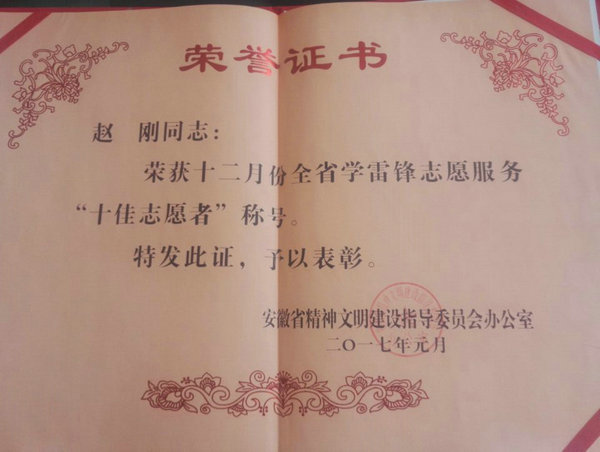 荣誉证书
赵 刚同志：
荣获十二月份全省学雷锋志愿服务
“十佳志愿者”称号。
特发此证，予以表彰。
安徽省精神文明建设指导委员会办公室
二〇一七年元月